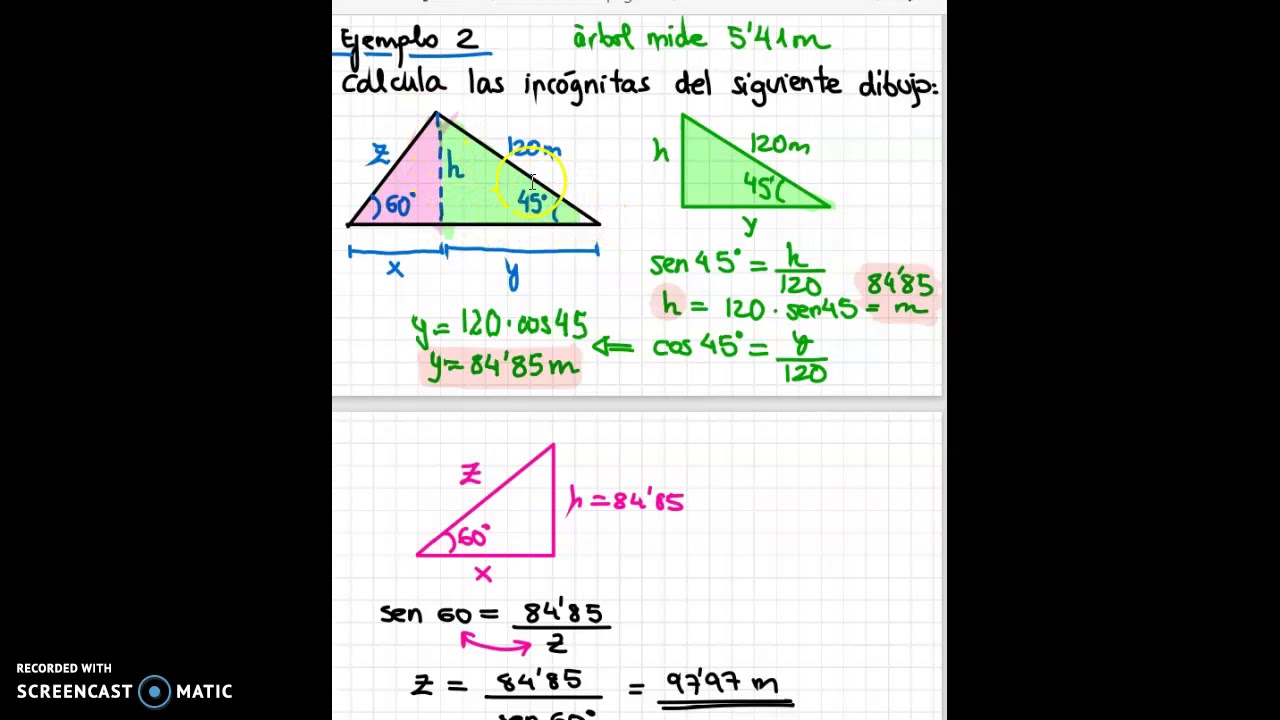 Ejemplo 2
árbol mide 5'41m
Calcula las incógnitas del siguiente dibujo:
z
h
120m
60°
45°
x
y
h
120m
45°
y
sen 45° = h/120
h = 120 · sen45 = 84'85 m
cos 45° = y/120
⇐
y= 120·cos45
y= 84'85m
z
h=84'85
60°
x
sen 60 = 84'85/z
z = 84'85/sen60° = 97'97 m
RECORDED WITH
SCREENCAST MATIC